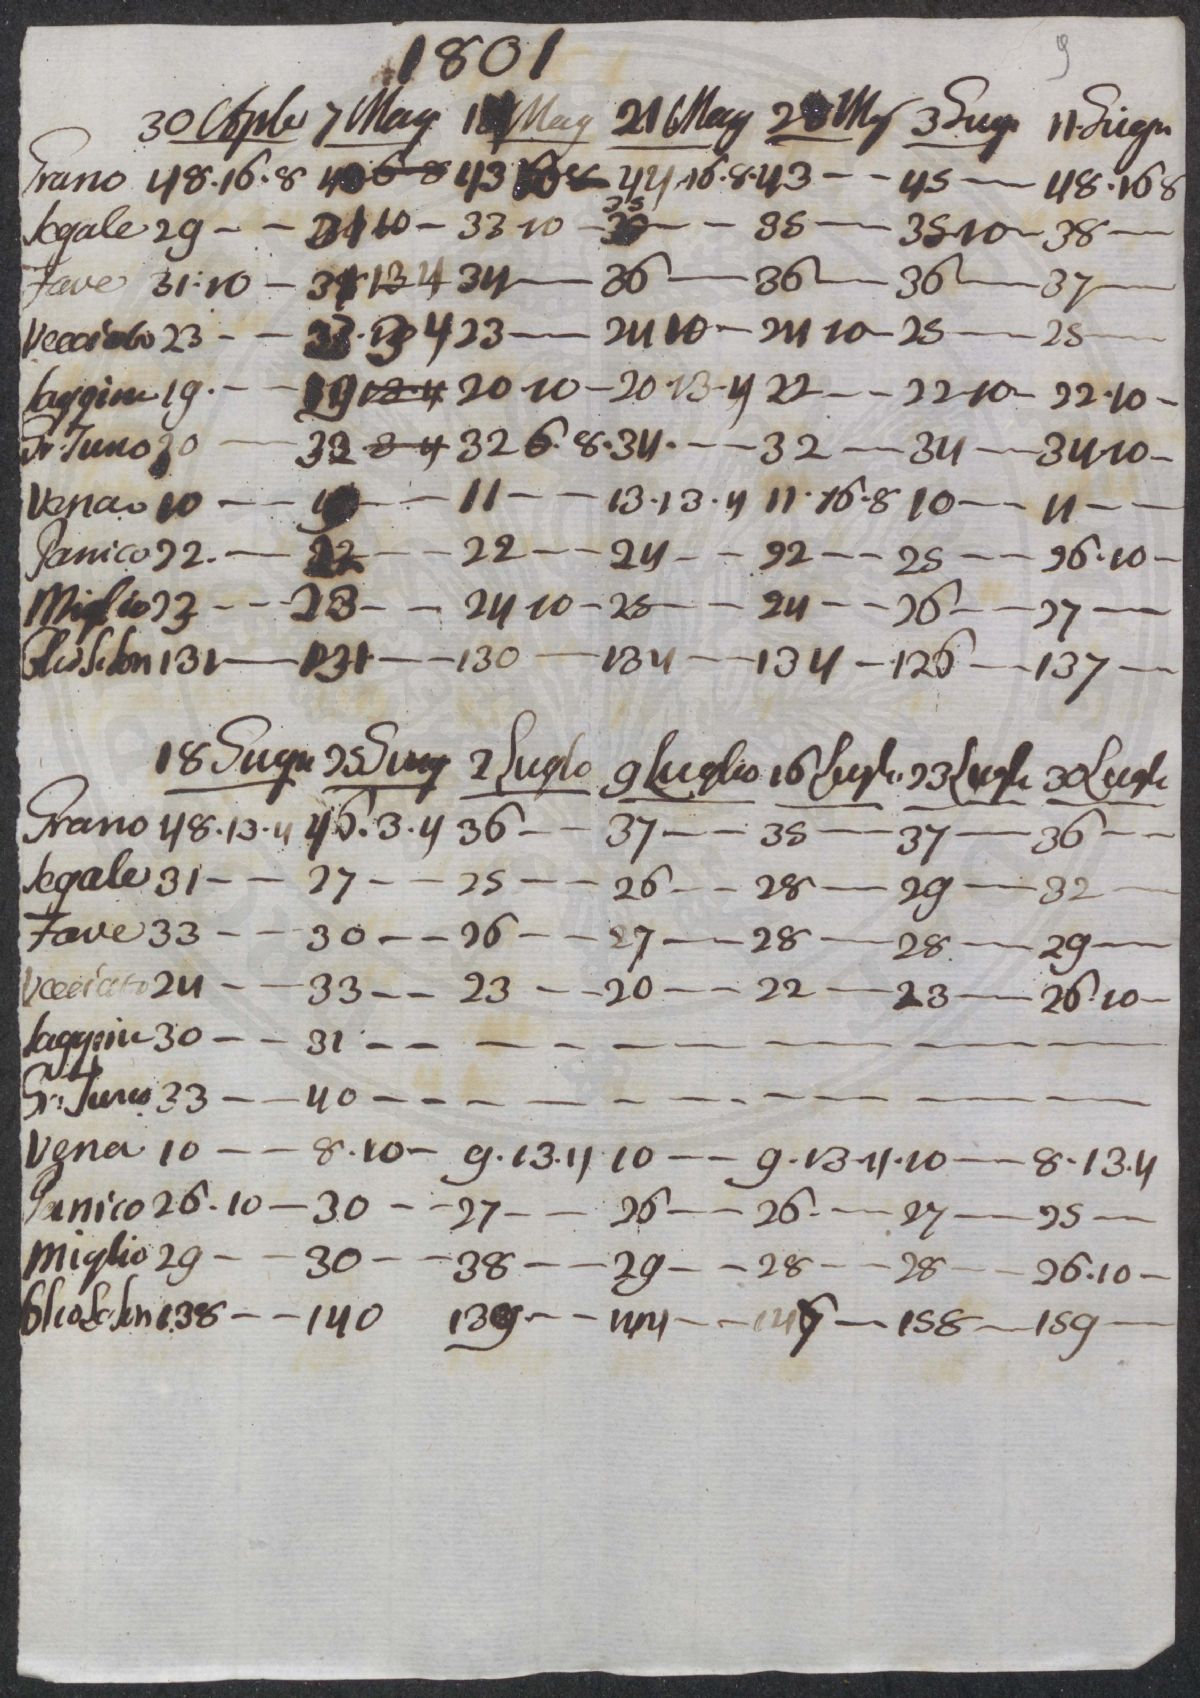 1801
9
30 Aple 7 Mag 1 Mag 21 Mag 28 Mg 3 Giug 11 Giugn
Grano 48.16.8 40 6 8 43 44.16.8 43 -- 45 — 48.16 8
Segale 29 -- 31 10 - 33 10 - 35 -- 35 — 35 10 - 38 —
Fave 31.10 - 34 13 4 34 — 36 — 36 — 36 — 37 —
Vecciato 23 -- 4 23 — 24 10 - 24 10 - 25 — 25 —
Saggina 19. -- 19 13.4 20 10 - 20.13.4 22 -- 22 10 - 22.10 -
Gr. Turco 30 — 32 3 4 32 6.8. 34. -- 32 -- 34 — 34 10 -
Vena 10 -- -- 11 -- 13.13.4 11.16.8 10 -- 11 --
Panico 22. — 22 -- 22 -- 24 -- 22 -- 25 -- 26.10 -
Miglio 23 -- 23 -- 24 10 - 25 -- 24 -- 26 -- 27 —
Olio 131 — 131 -- 130 — 134 — 134 - 126 — 137 —
18 Giugn 25 Giug 2 Luglo 9 Luglio 16 Lugl. 23 Lugl 30 Lugl
Grano 48.13.4 46.3.4 36 -- 37 -- 35 — 37 — 36 --
Segale 31 -- 27 -- 25 -- 26 -- 28 — 29 — 32 —
Fave 33 -- 30 -- 26 -- 27 -- 28 — 28 — 29 —
Vecciato 24 -- 33 -- 23 -- 20 -- 22 -- 23 — 26.10 -
Saggina 30 -- 31 -- — — — — —
Gr. Turco 33 -- 40 -- — — — — —
Vena 10 -- 8.10 - 9.13.4 10 -- 9.13.4. 10 — 8.13.4
Panico 26.10 - 30 -- 27 -- 26 -- 26. — 27 — 25 —
Miglio 29 -- 30 -- 38 -- 29 -- 28 -- 28 -- 26.10 -
Olio 138 -- 140 139 -- 144 -- 146 — 158 — 159 —